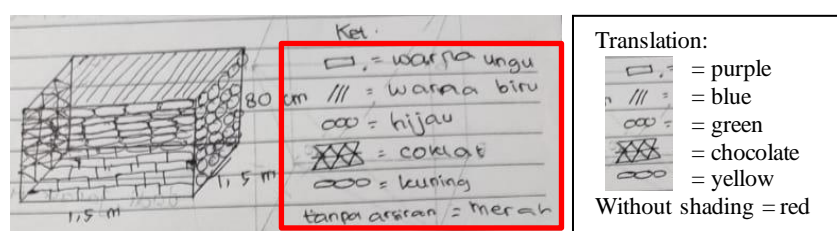 Ket.
= warna ungu
80 cm
/// = warna biru
= hijau
= coklat
1,5 m
= kuning
1,5 m
tanpa arsiran = merah
Translation:
= purple
= blue
= green
= chocolate
= yellow
Without shading = red